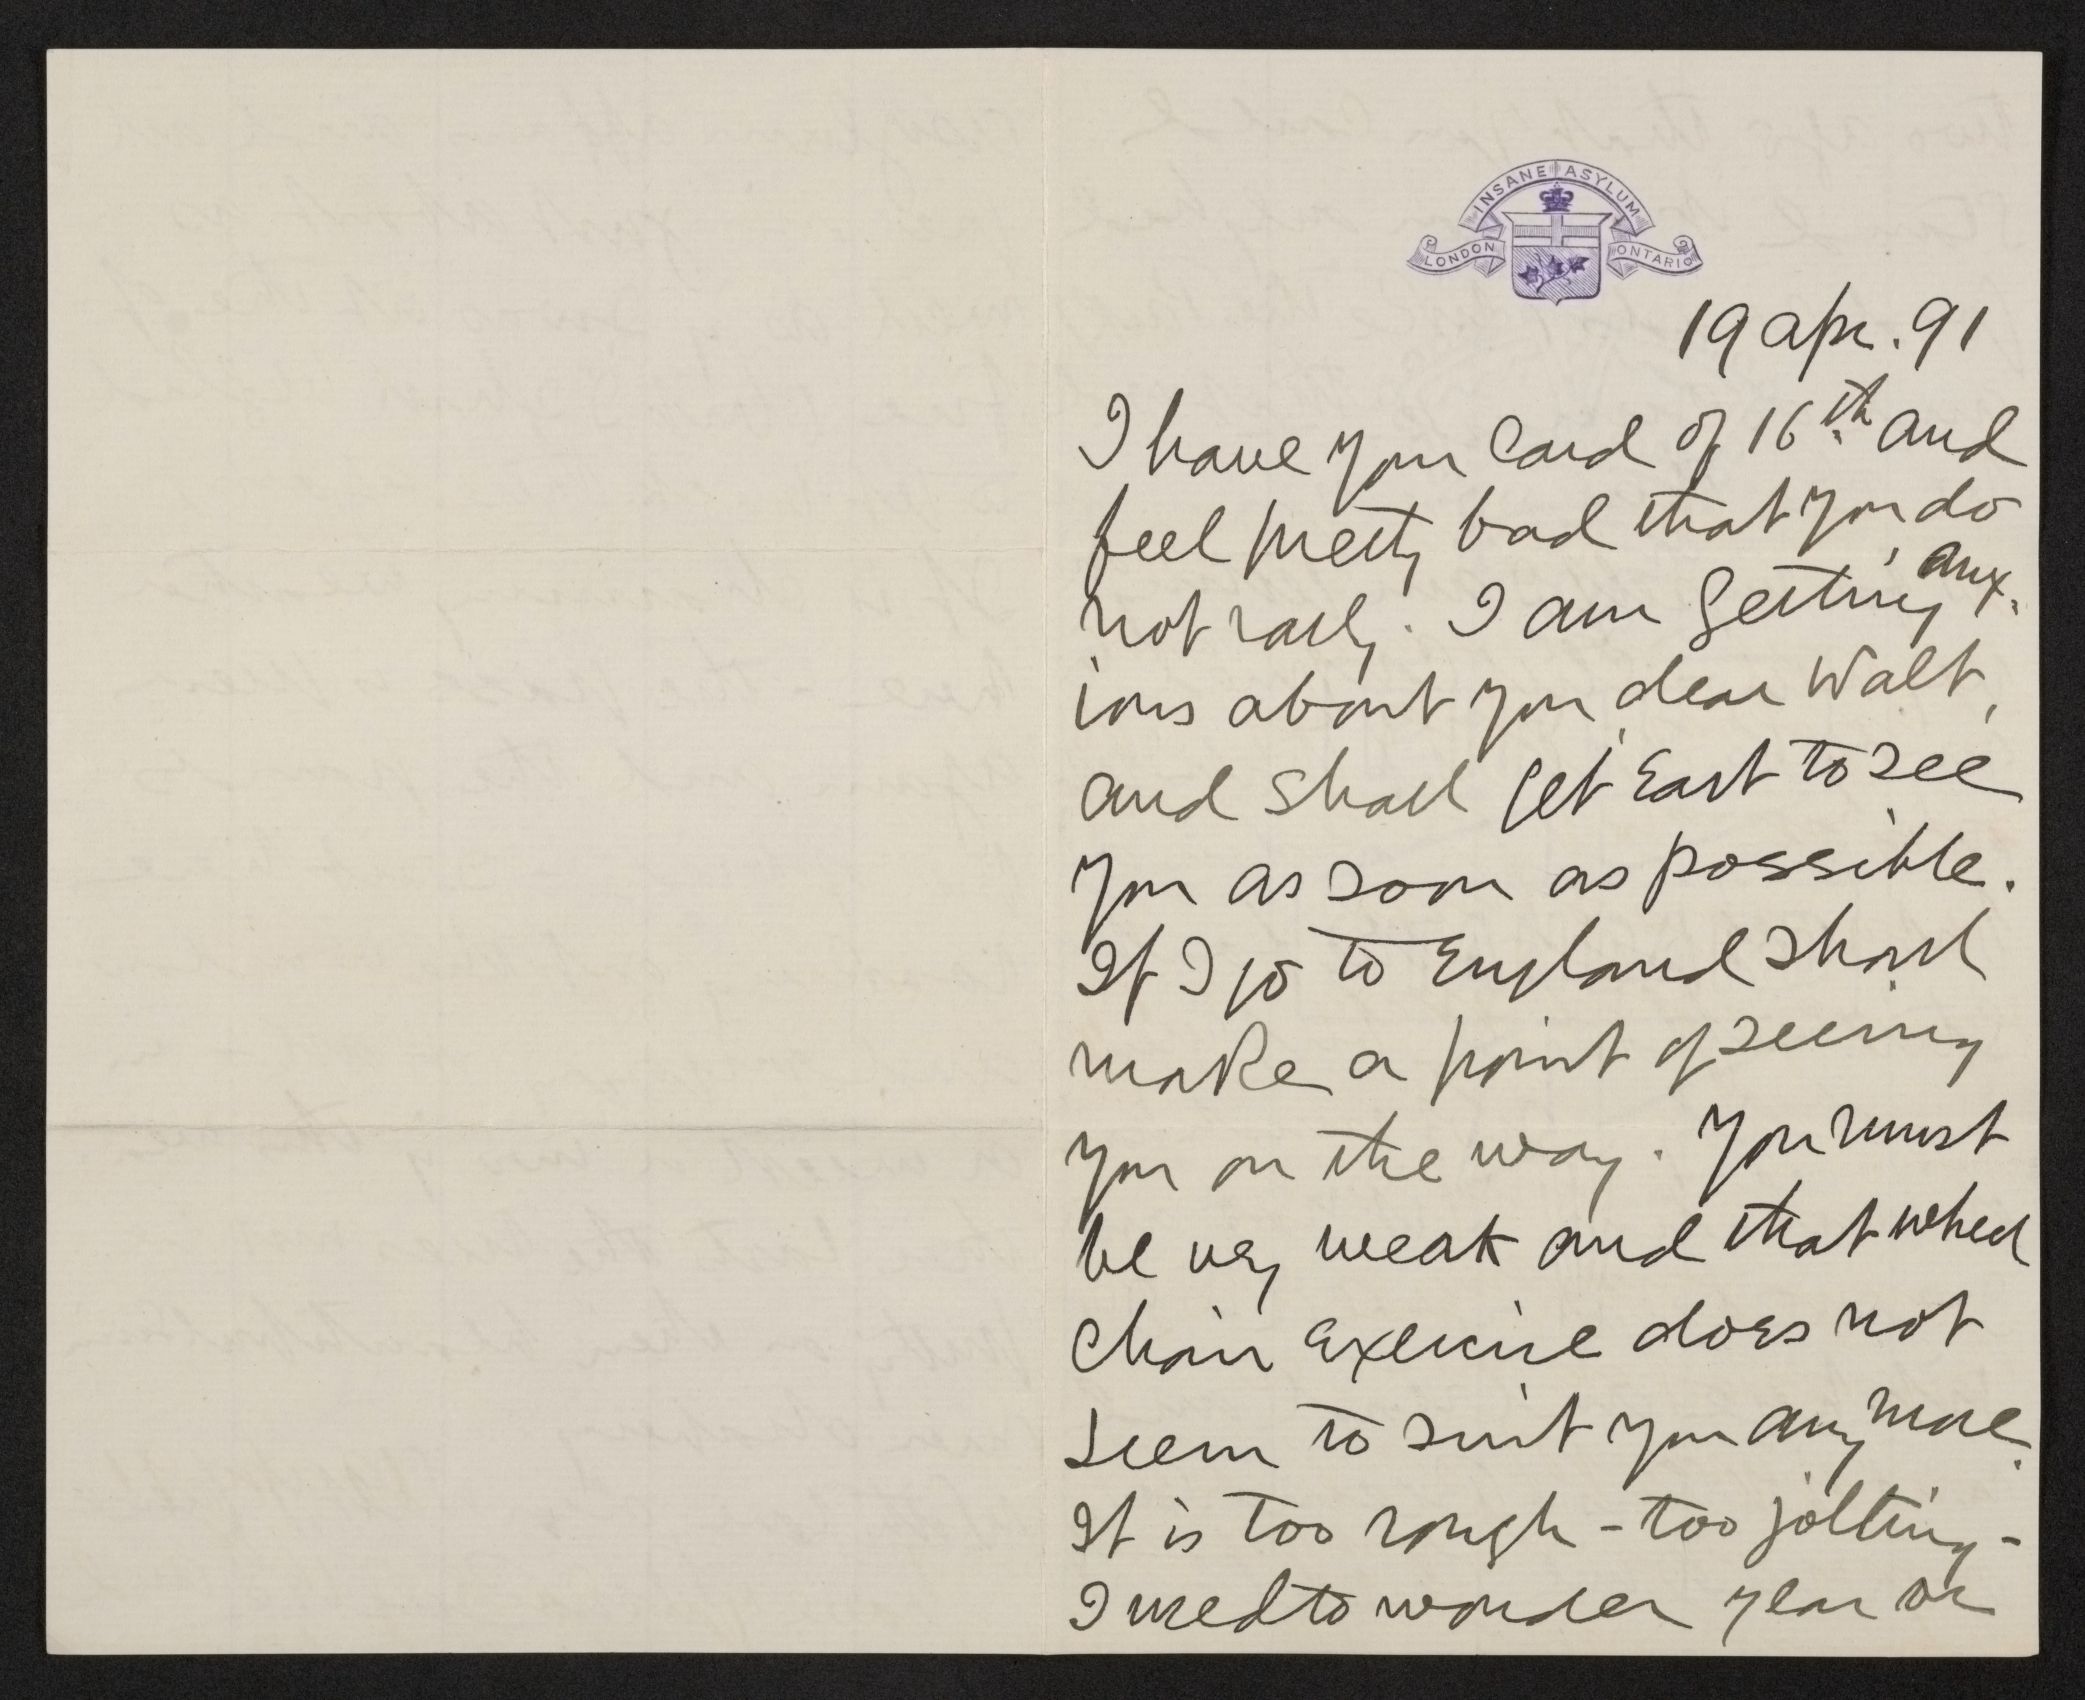 INSANE ASYLUM
LONDON ONTARIO
19 Apr. 91
I have your card of 16th and
feel pretty bad that you do
not rally. I am getting anx-
ious about you, dear Walt,
and shall get East to see
you as soon as possible.
If I go to England shall
make a point of seeing
you on the way. You must
be very weak and that wheel
chair exercise does not
seem to suit you any more.
It is too rough - too jolting -
I used to wonder year or